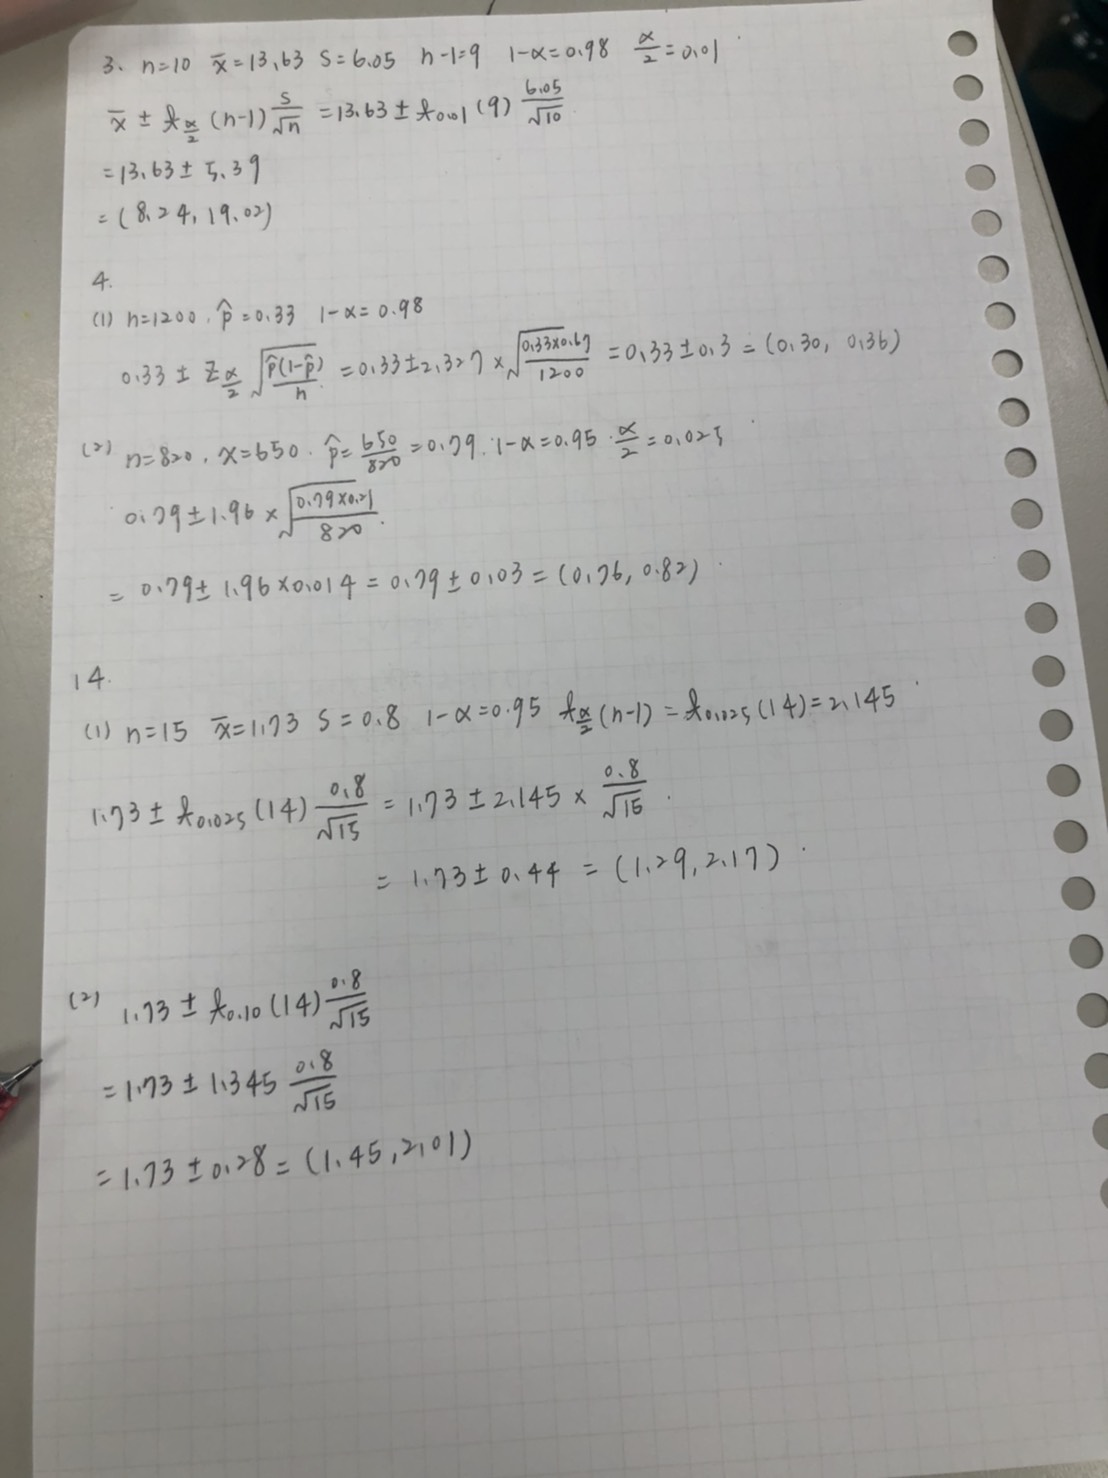 3. n=10 x̄=13.63 S=6.05 n-1=9 1-α=0.98 α/2=0.01
x̄ ± t_{α/2} (n-1) S/√n = 13.63 ± t_{0.01} (9) 6.05/√10
= 13.63 ± 5.39
= (8.24, 19.02)
4.
(1) n=1200. p̂=0.33 1-α=0.98
0.33 ± Z_{α/2} √(p̂(1-p̂)/n) = 0.33 ± 2.327 × √(0.33×0.67/1200) = 0.33 ± 0.3 = (0.30, 0.36)
(2) n=820. x=650. p̂=650/820=0.79. 1-α=0.95. α/2=0.025
0.79 ± 1.96 × √(0.79×0.21/820)
= 0.79 ± 1.96×0.014 = 0.79 ± 0.03 = (0.76, 0.82)
14.
(1) n=15 x̄=1.73 S=0.8 1-α=0.95 t_{α/2}(n-1) = t_{0.025}(14) = 2.145
1.73 ± t_{0.025}(14) 0.8/√15 = 1.73 ± 2.145 × 0.8/√15
= 1.73 ± 0.44 = (1.29, 2.17)
(2) 1.73 ± t_{0.10}(14) 0.8/√15
= 1.73 ± 1.345 0.8/√15
= 1.73 ± 0.28 = (1.45, 2.01)